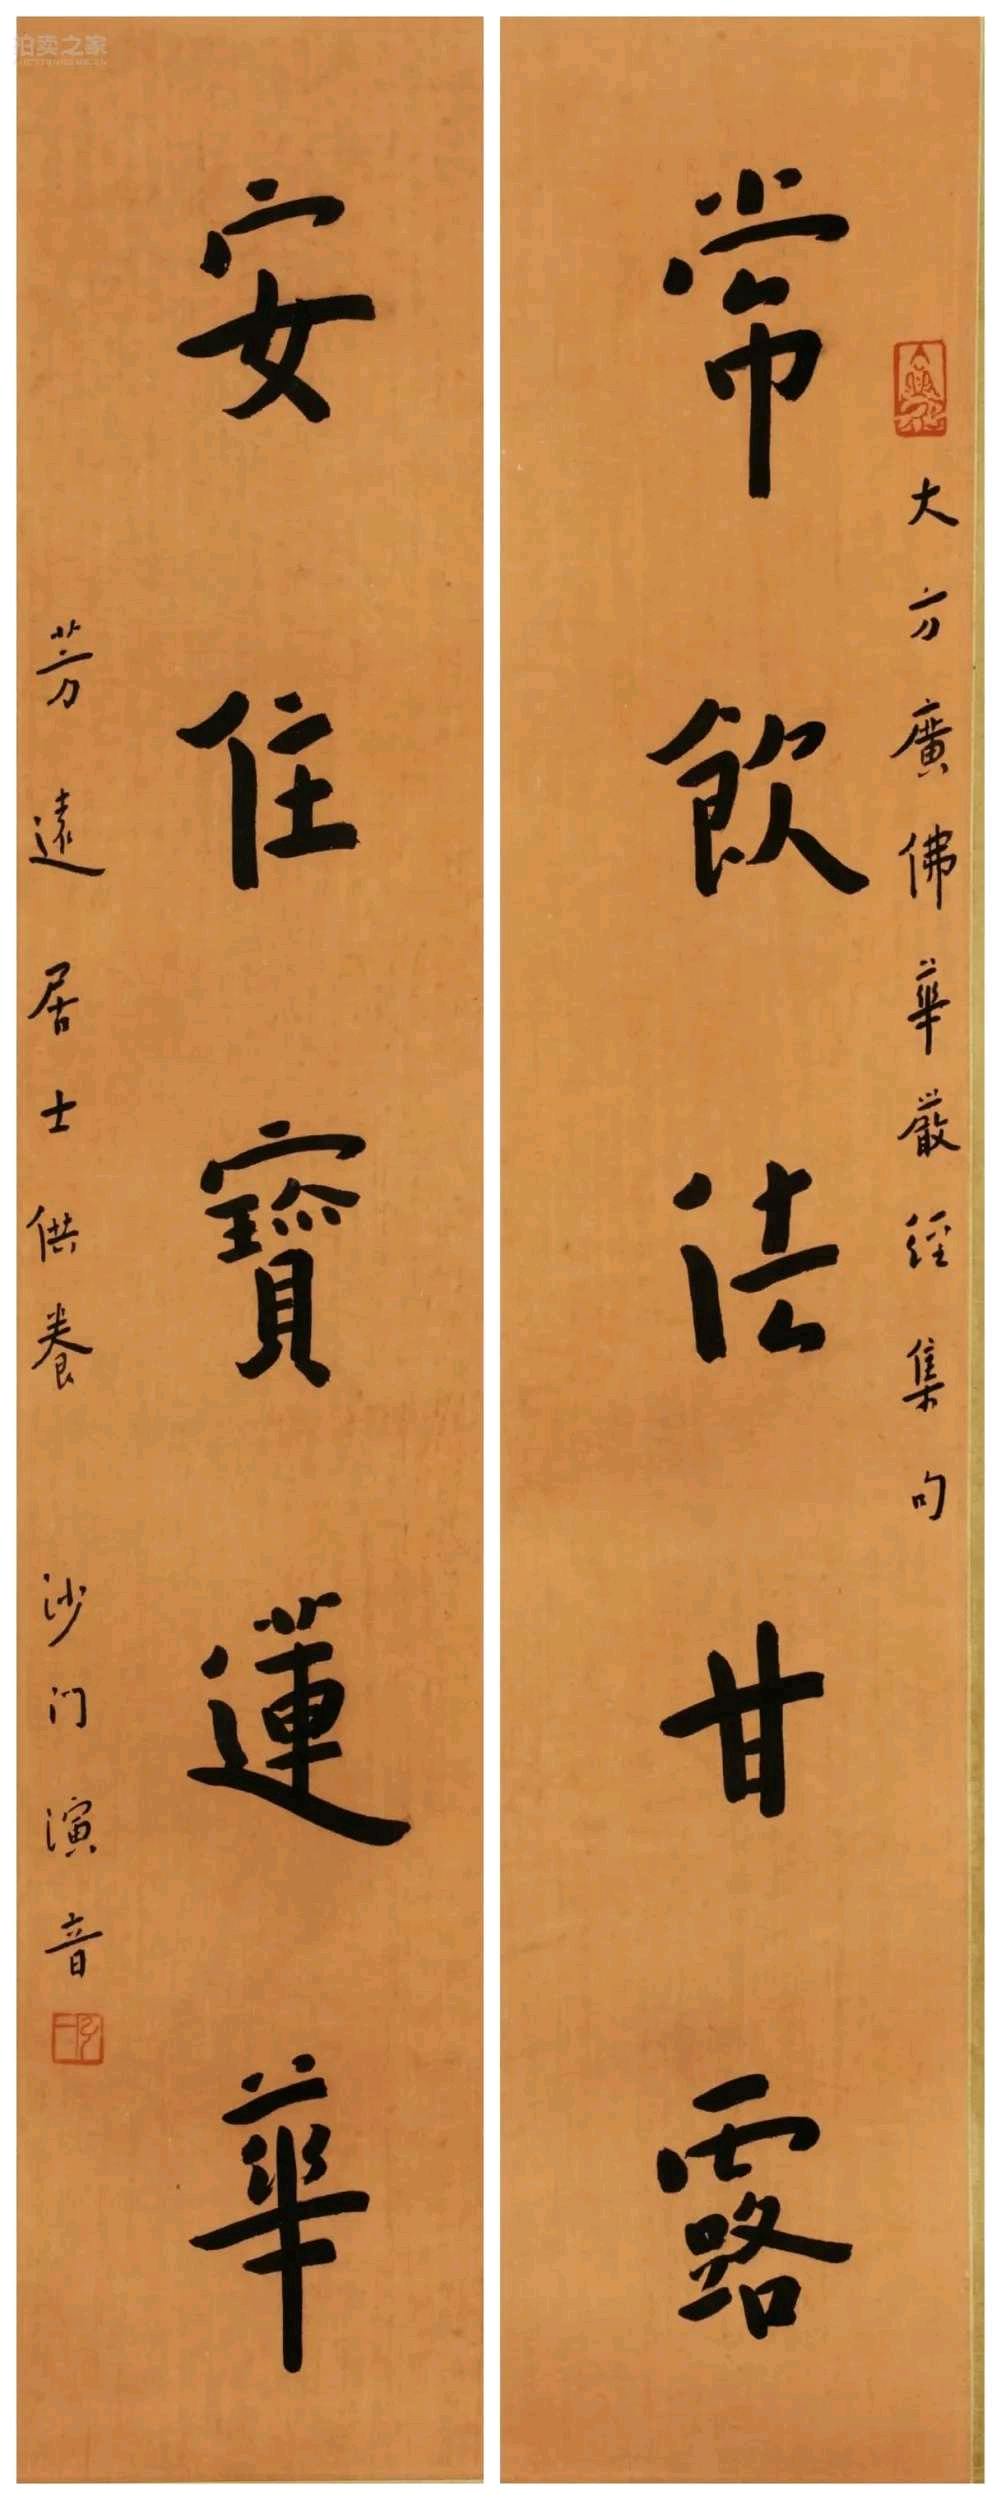 大方廣佛華嚴經集句
常飲法甘露
安住寶蓮華
芳遠居士供養 沙门演音
拍卖之家